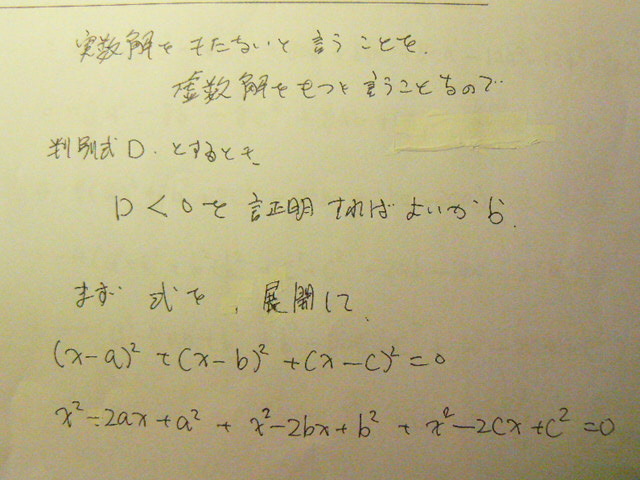 実数解をもたないと言うことを、
虚数解をもつと言うことなので
判別式D.とするとき、
D<0を証明すればよいから.
まず 式を、展開して、
(x-a)²+(x-b)²+(x-c)²=0
x²-2ax+a²+x²-2bx+b²+x²-2cx+c²=0